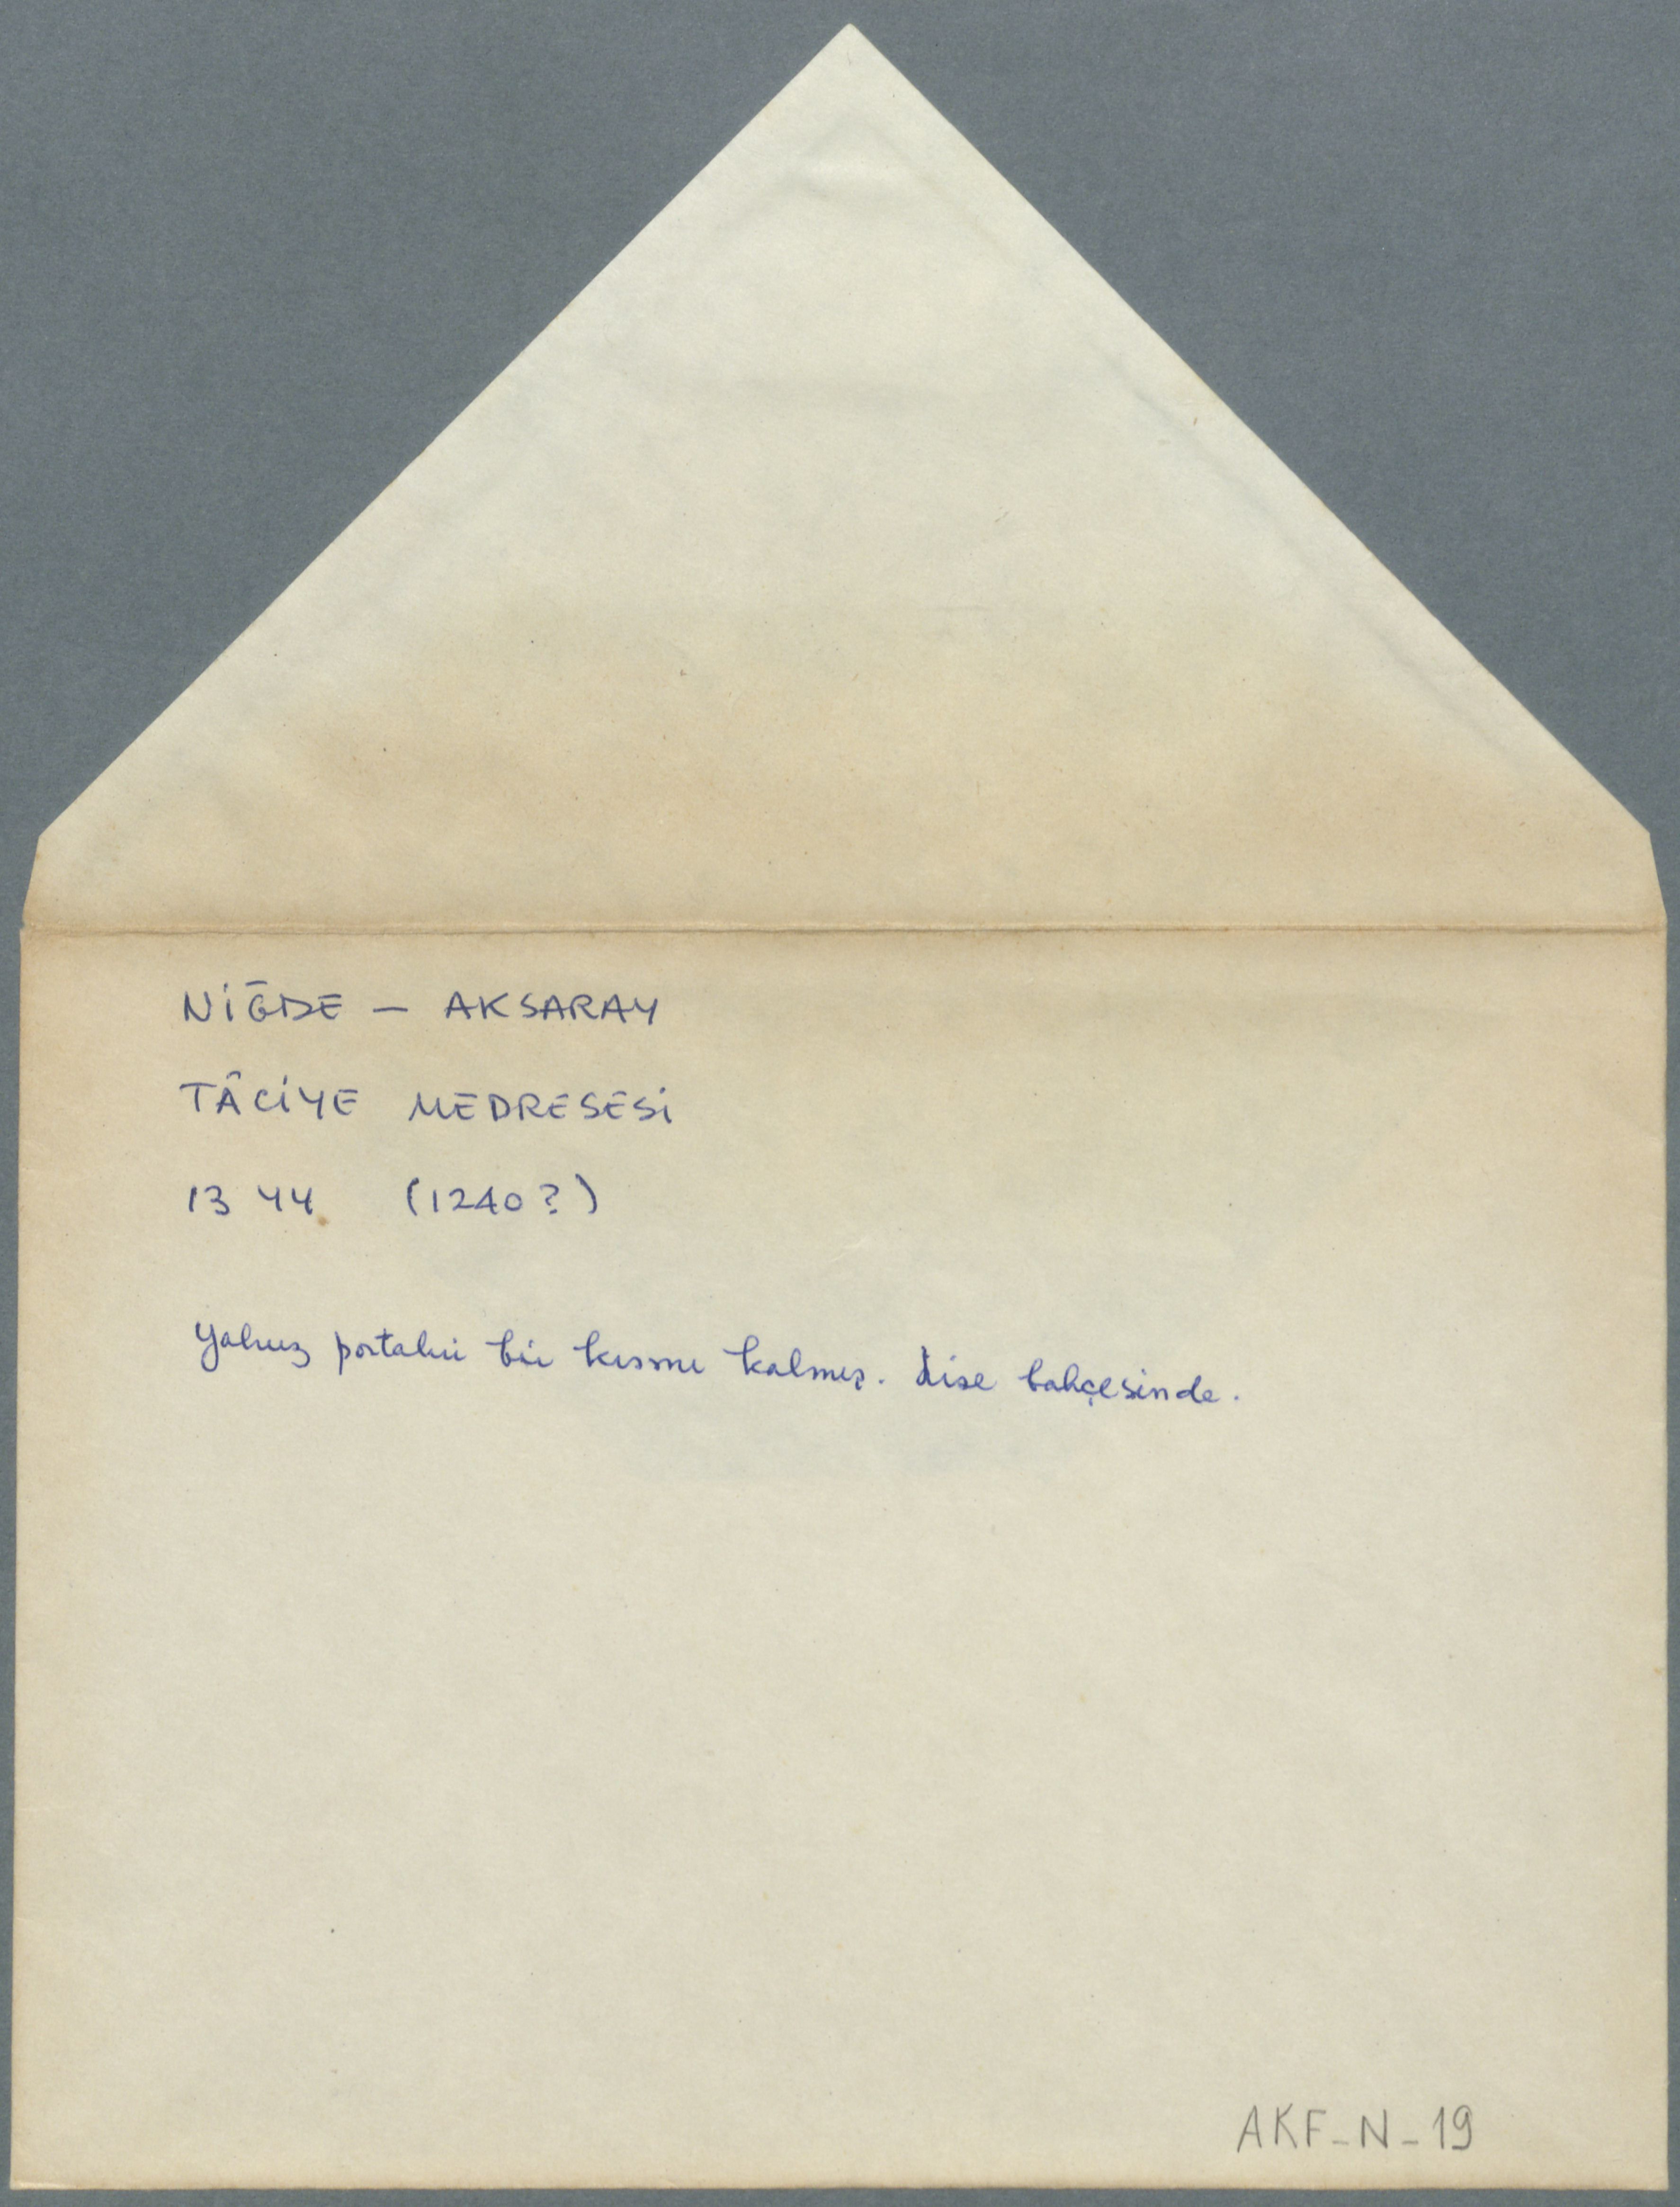 NİĞDE — AKSARAY
TÂCİYE MEDRESESİ
1344 (1240?)
Yalnız portalin bir kısmı kalmış. Lise bahçesinde.
AKF-N-19